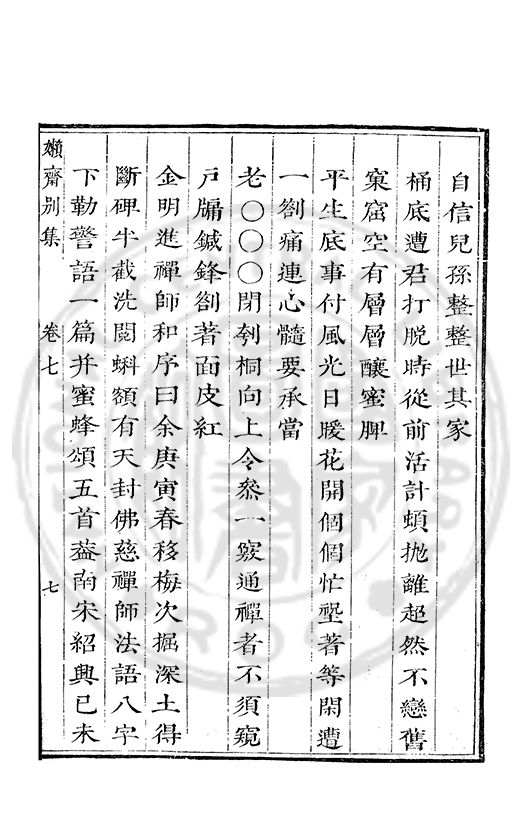 自信兒孫整整世其家
桶底遭君打脫時從前活計頓抛離超然不戀舊
窠窟空有層層釀蜜脾
平生底事付風光日暖花開個個忙壁著等閑遭
一劄痛連心髓要承當
老〇〇〇閉刳桐向上令叅一竅通禪者不須窺
戸牖鍼鋒劄著面皮紅
金明進禪師和序曰余庚寅春移梅次掘深土得
斷碑半截洗閱蝌額有天封佛慈禪師法語八字
下勒警語一篇并蜜蜂頌五首葢南宋紹興已未
嬾齋别集
卷七
七